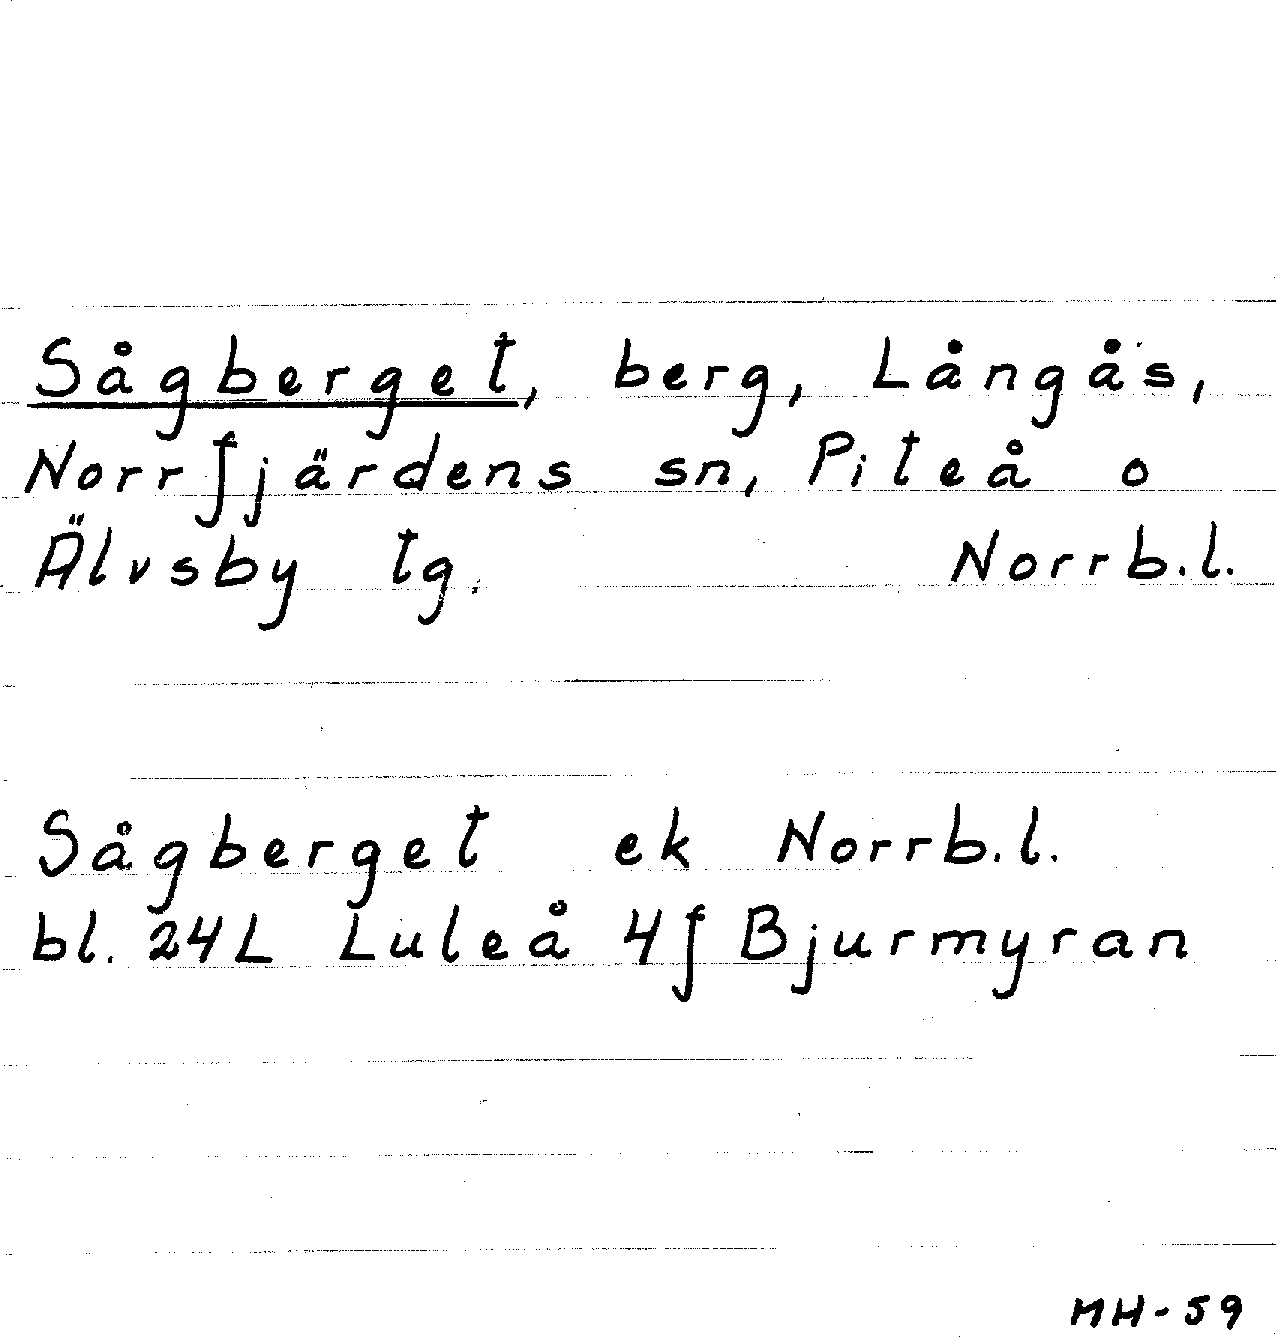 Sågberget, berg, Långås,
Norrfjärdens sn, Piteå o
Älvsby tg. Norrb.l.
Sågberget ek Norrb.l.
bl. 24L Luleå 4f Bjurmyran
MH-59